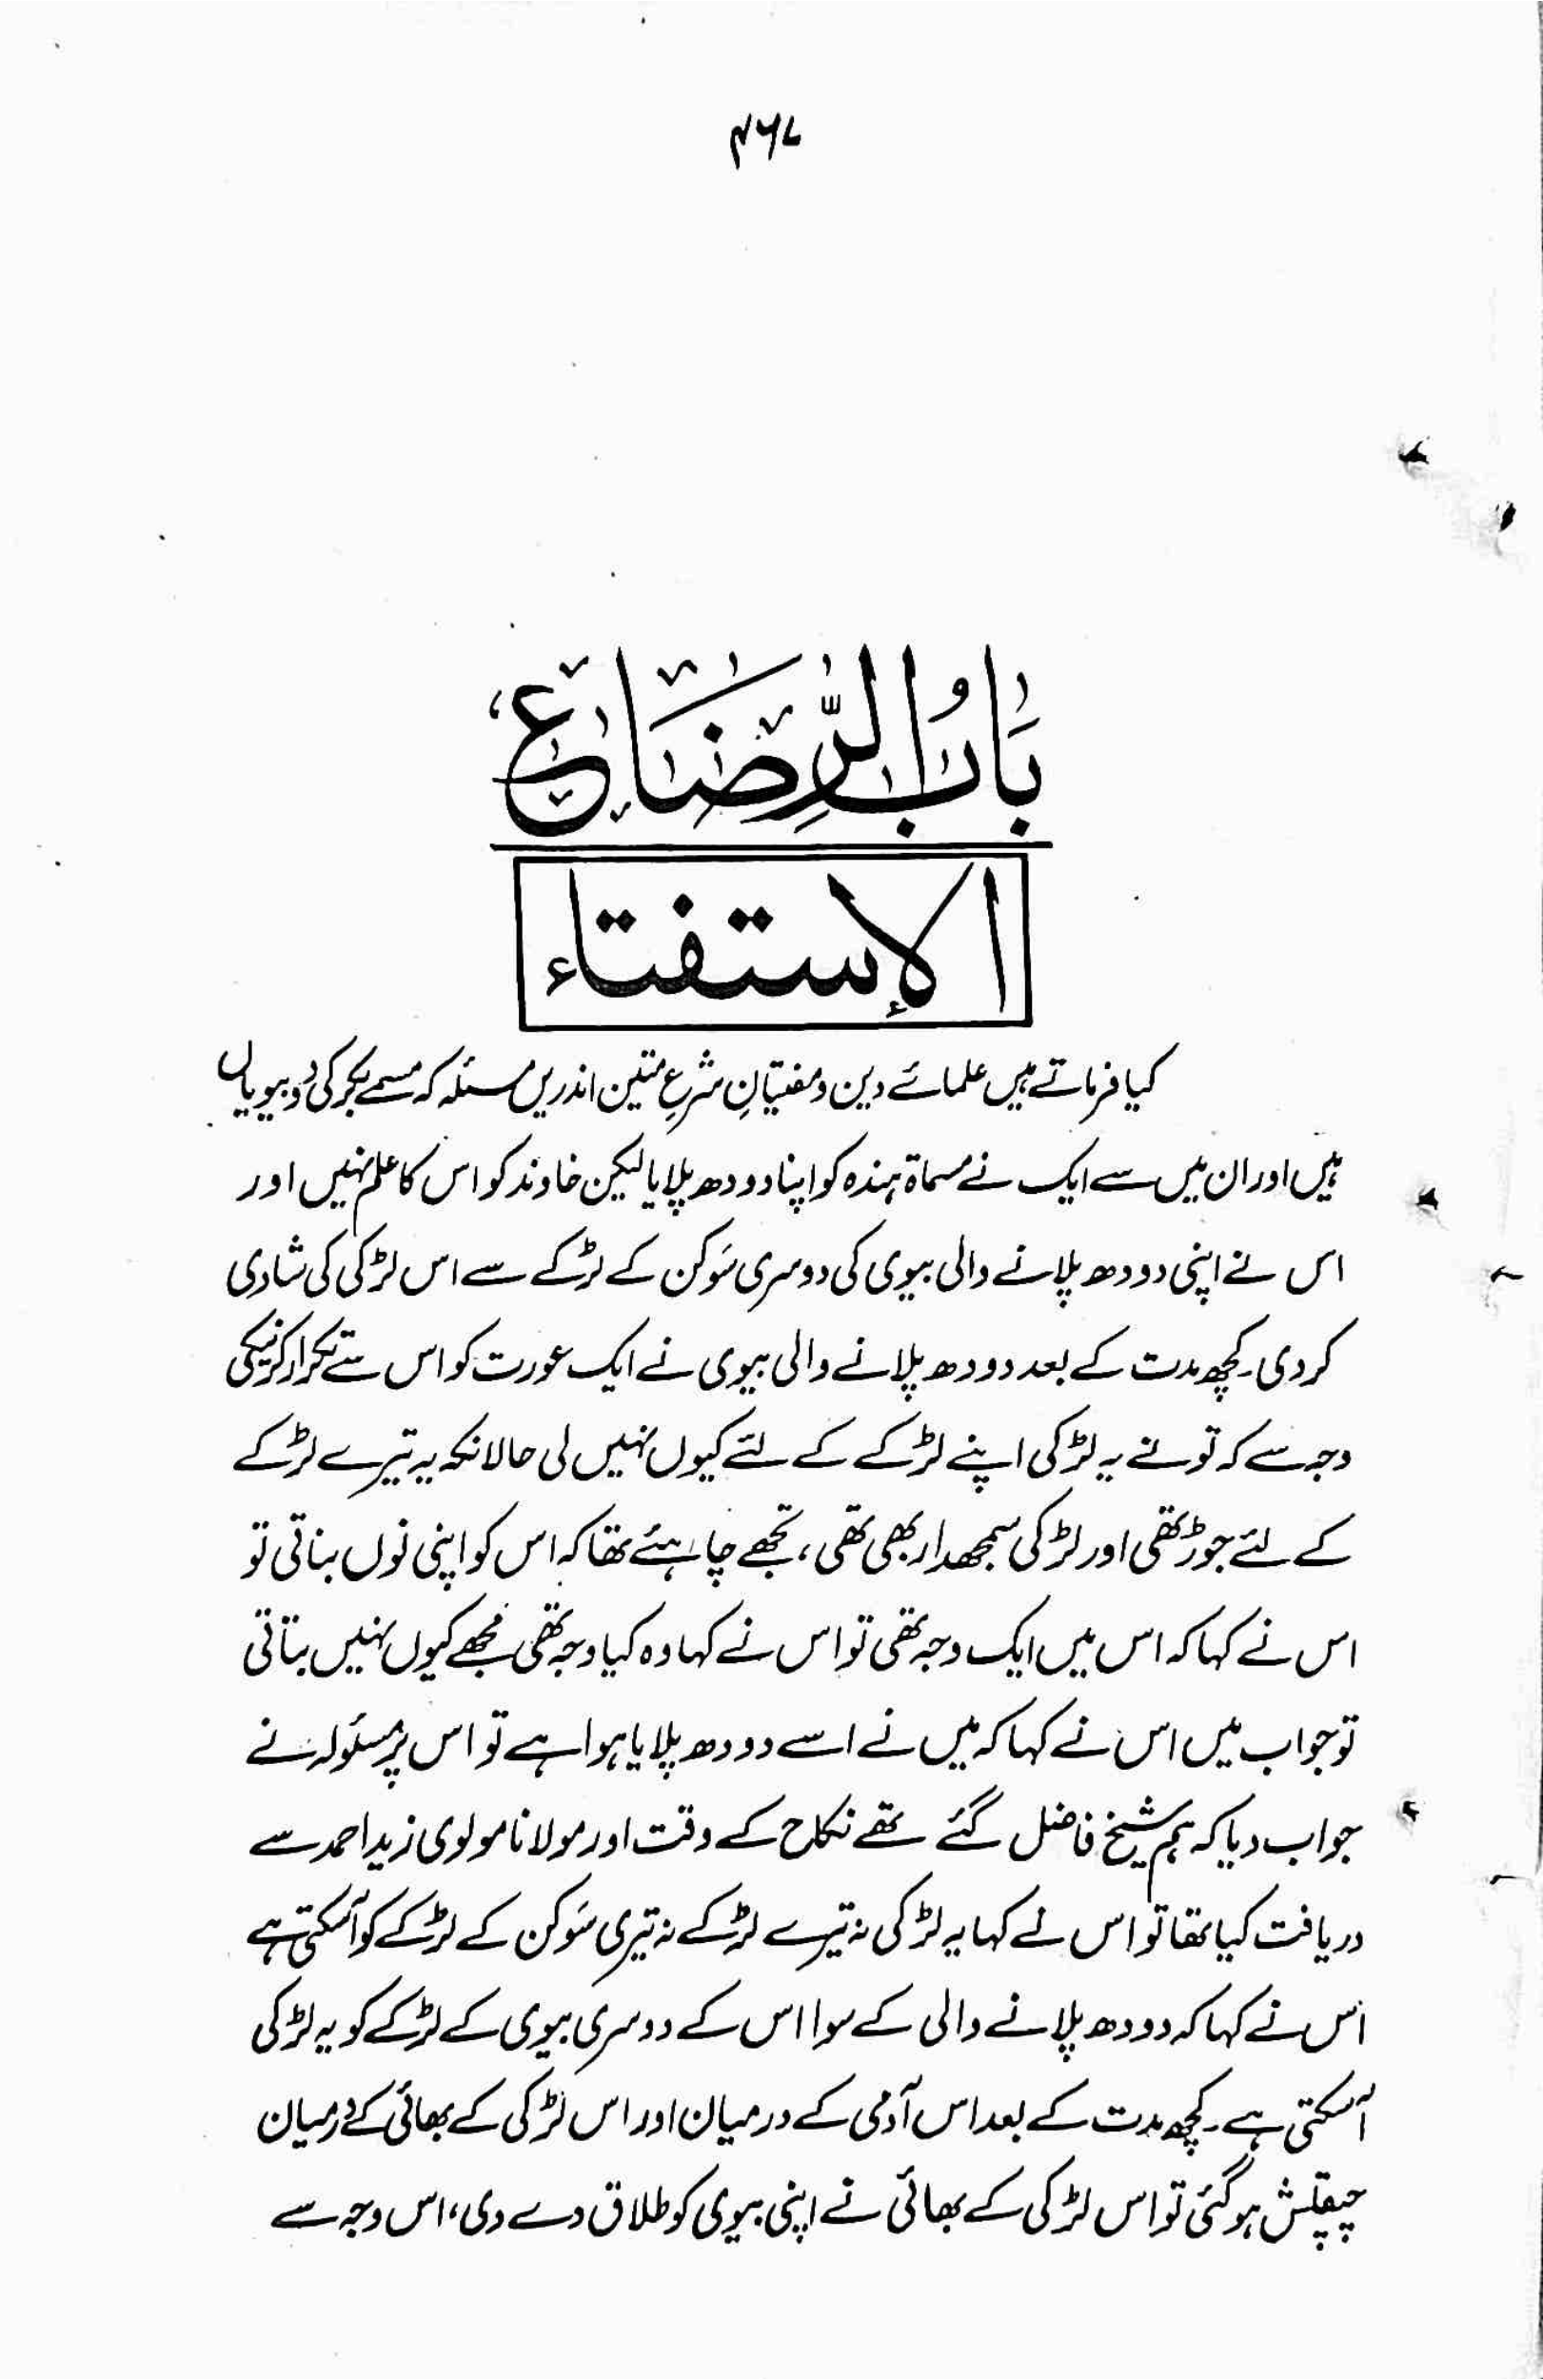 ۴۶۷
بَابُ الرِّضَاعِ
الاِستفتاء
کیا فرماتے ہیں علمائے دین ومفتیانِ شرعِ متین اندریں مسئلہ کہ مسمے بکر کی دو بیویاں
ہیں اور ان میں سے ایک نے مسماۃ ہندہ کو اپنا دودھ پلایا لیکن خاوند کو اس کا علم نہیں اور
اس نے اپنی دودھ پلانے والی بیوی کی دوسری سَوکن کے لڑکے سے اس لڑکی کی شادی
کردی۔ کچھ مدت کے بعد دودھ پلانے والی بیوی نے ایک عورت کو اس سے تکرار کرنیکی
وجہ سے کہ تو نے یہ لڑکی اپنے لڑکے کے لئے کیوں نہیں لی حالانکہ یہ تیرے لڑکے
کے لئے جوڑ تھی اور لڑکی سمجھدار بھی تھی، تجھے چاہئے تھا کہ اس کو اپنی نوں بناتی تو
اس نے کہا کہ اس میں ایک وجہ تھی تو اس نے کہا وہ کیا وجہ تھی مجھے کیوں نہیں بتاتی
تو جواب میں اس نے کہا کہ میں نے اسے دودھ پلایا ہوا ہے تو اس پر مسئولہ نے
جواب دیا کہ ہم شیخ فاضل گئے تھے نکاح کے وقت اور مولانا مولوی زید احمد سے
دریافت کیا تھا تو اس نے کہا یہ لڑکی نہ تیرے لڑکے نہ تیری سَوکن کے لڑکے کو آسکتی ہے
اس نے کہا کہ دودھ پلانے والی کے سوا اس کے دوسری بیوی کے لڑکے کو یہ لڑکی
آسکتی ہے۔ کچھ مدت کے بعد اس آدمی کے درمیان اور اس لڑکی کے بھائی کے درمیان
چپقلش ہوگئی تو اس لڑکی کے بھائی نے اپنی بیوی کو طلاق دے دی، اس وجہ سے